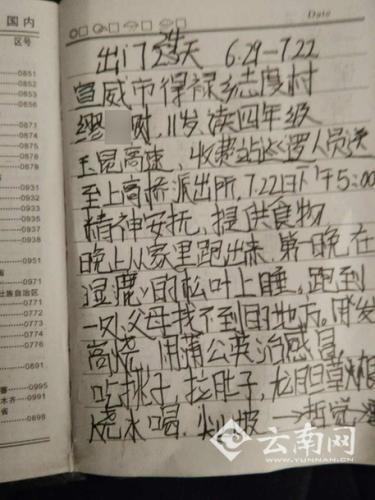 国内
区号
Date
出门23天 6.29-7.22
24
宣威市得禄乡志度村
缪 财,11岁读四年级
玉昆高速,收费站巡逻人员送
至上高桥派出所,7.22日下午5:00
精神安抚,提供食物
晚上从家里跑出来.第一晚在
湿漉漉的松叶上睡,跑到
一处父母找不到的地方,
高烧 用蒲公英治感冒
吃桃子,拉肚子,龙胆草
烧水喝. →哲觉→
0851
0852
0853
0871
0873
0874
0878
0931
0932
0934
0937
0938
0941
0943
0951
0971
壮族自治区
0771
0772
0773
0774
0776
0891
0995
0996
木齐
省
0898
云南网
WWW.YUNNAN.CN